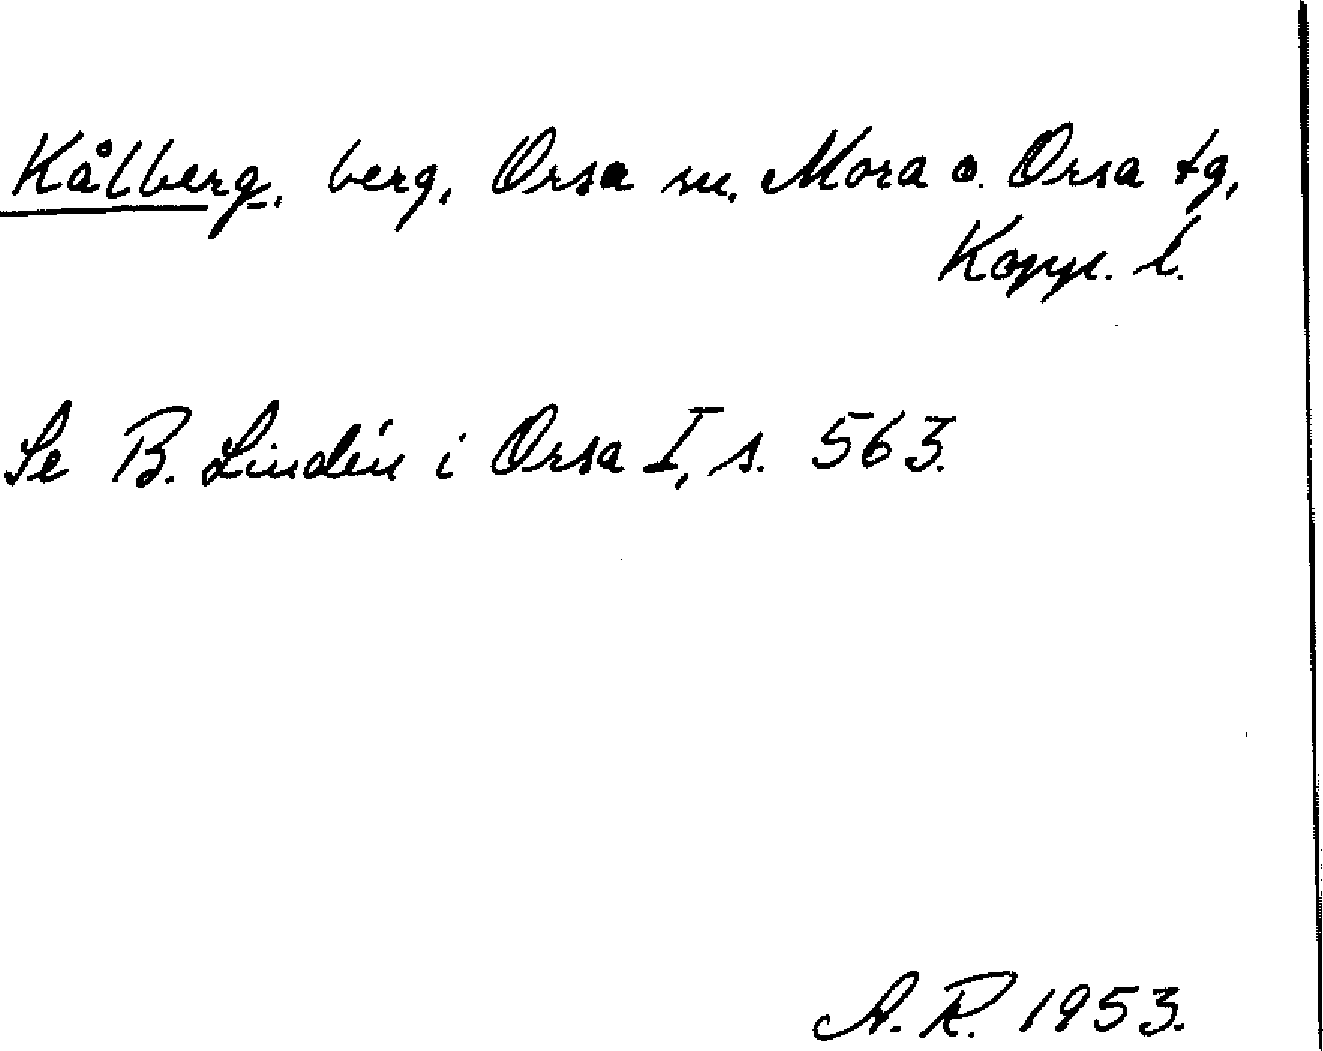 Kålberg, berg, Orsa sn, Mora o. Orsa tg,
Kopp. l.
Se B. Lindén i Orsa I, s. 563.
A. R. 1953.